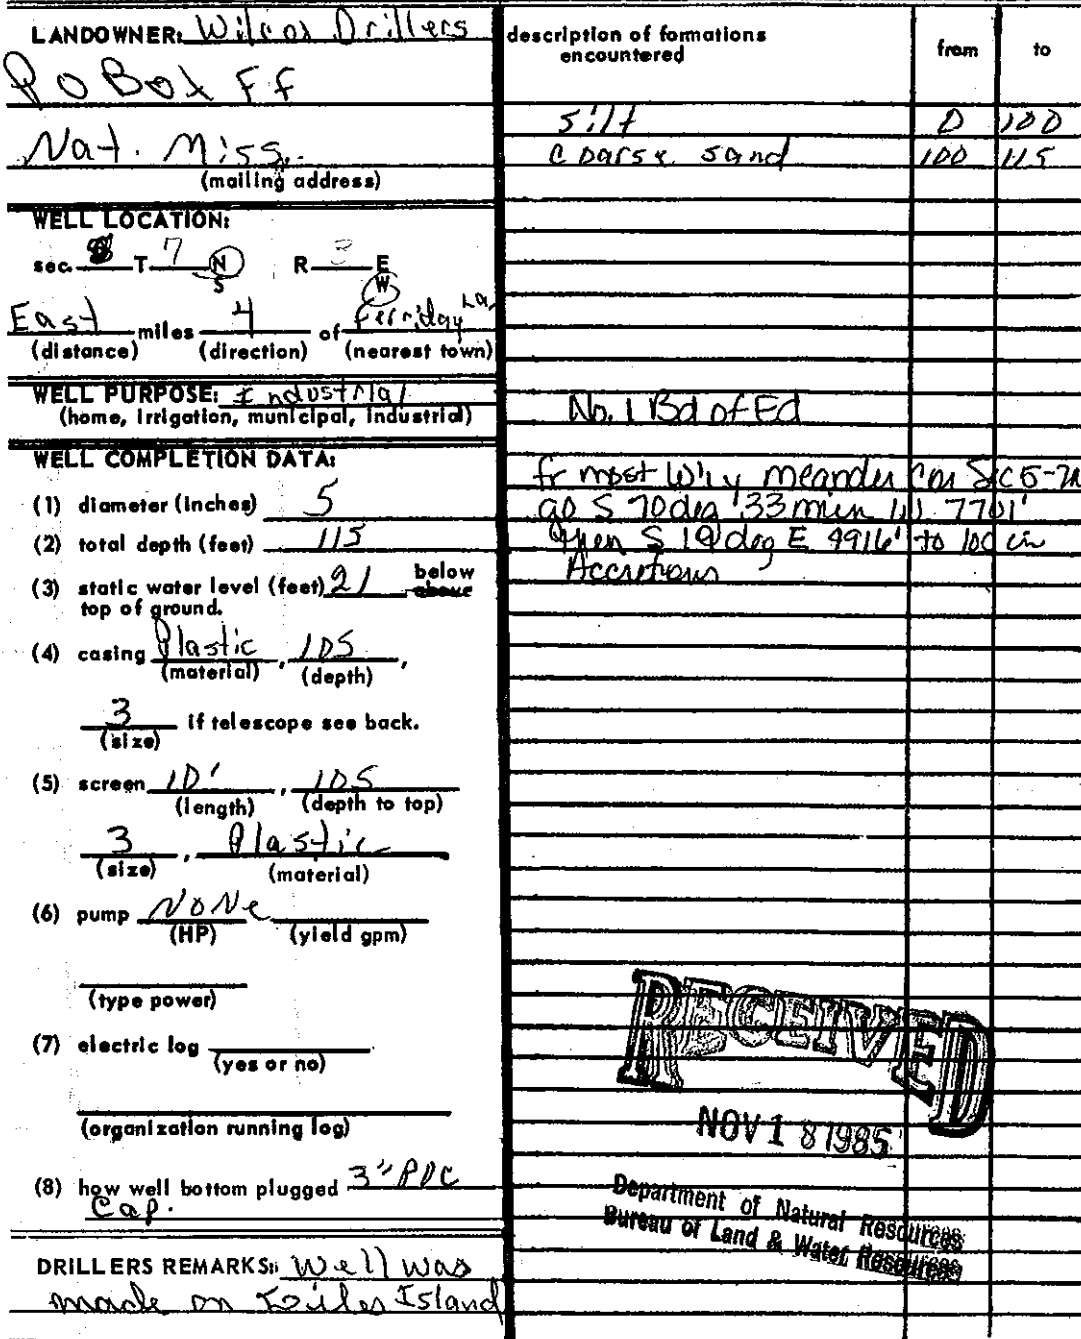 LANDOWNER: Wilcox Drillers
P O Box FF
Nat. Miss.
(mailing address)
WELL LOCATION:
sec. T 7 N R 3 E
S W
East miles 4 of Ferriday La.
(distance) (direction) (nearest town)
WELL PURPOSE: Industrial
(home, irrigation, municipal, industrial)
WELL COMPLETION DATA:
(1) diameter (inches) 5
(2) total depth (feet) 115
(3) static water level (feet) 21 below above
top of ground.
(4) casing Plastic, 105,
(material) (depth)
3 if telescope see back.
(size)
(5) screen 10', 105
(length) (depth to top)
3, Plastic
(size) (material)
(6) pump NoNe
(HP) (yield gpm)
(type power)
(7) electric log
(yes or no)
(organization running log)
(8) how well bottom plugged 3" PVC
Cap.
DRILLERS REMARKS: Well was
made on Island
description of formations
encountered from to
silt 0 100
coarse sand 100 115
No. 1 Bd of Ed
fr most W'ly meander cor Sec 5-7N
go S 70 deg 33 min W 7701'
then S 19 deg E 9916' to loc in
Accretions
RECEIVED
NOV 18 1985
Department of Natural Resources
Bureau of Land & Water Resources